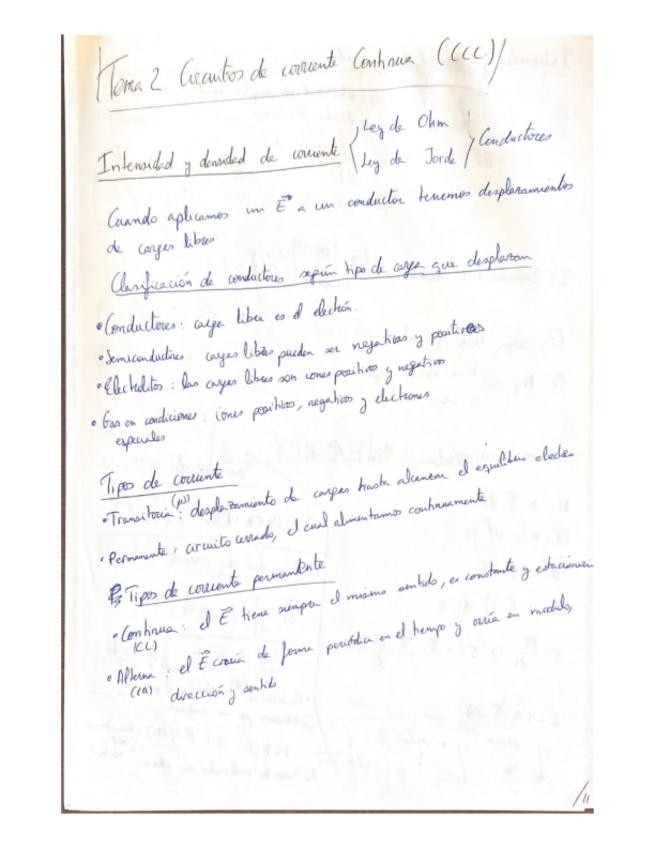 Tema 2 Circuitos de corriente Continua (CCC)
Intensidad y densidad de corriente { Ley de Ohm
Ley de Jorde } Conductores
Cuando aplicamos un E⃗ a un conductor tenemos desplazamientos
de cargas libres
Clasificación de conductores según tipo de carga que desplazan
• Conductores: carga libre es el electrón.
• Semiconductores: cargas libres pueden ser negativas y positivas
• Electrolitos: las cargas libres son iones positivos y negativos
• Gas en condiciones: iones positivos, negativos y electrones
especiales
Tipos de corriente
• Transitoria: desplazamiento de cargas hasta alcanzar el equilibrio
• Permanente: circuito cerrado, el cual alimentamos continuamente
Tipos de corriente permanente
• Continua: el E⃗ tiene siempre el mismo sentido, es constante y
(CC)
• Alterna: el E⃗ de forma periódica en el tiempo y varía en modulo,
(CA) dirección y sentido
11